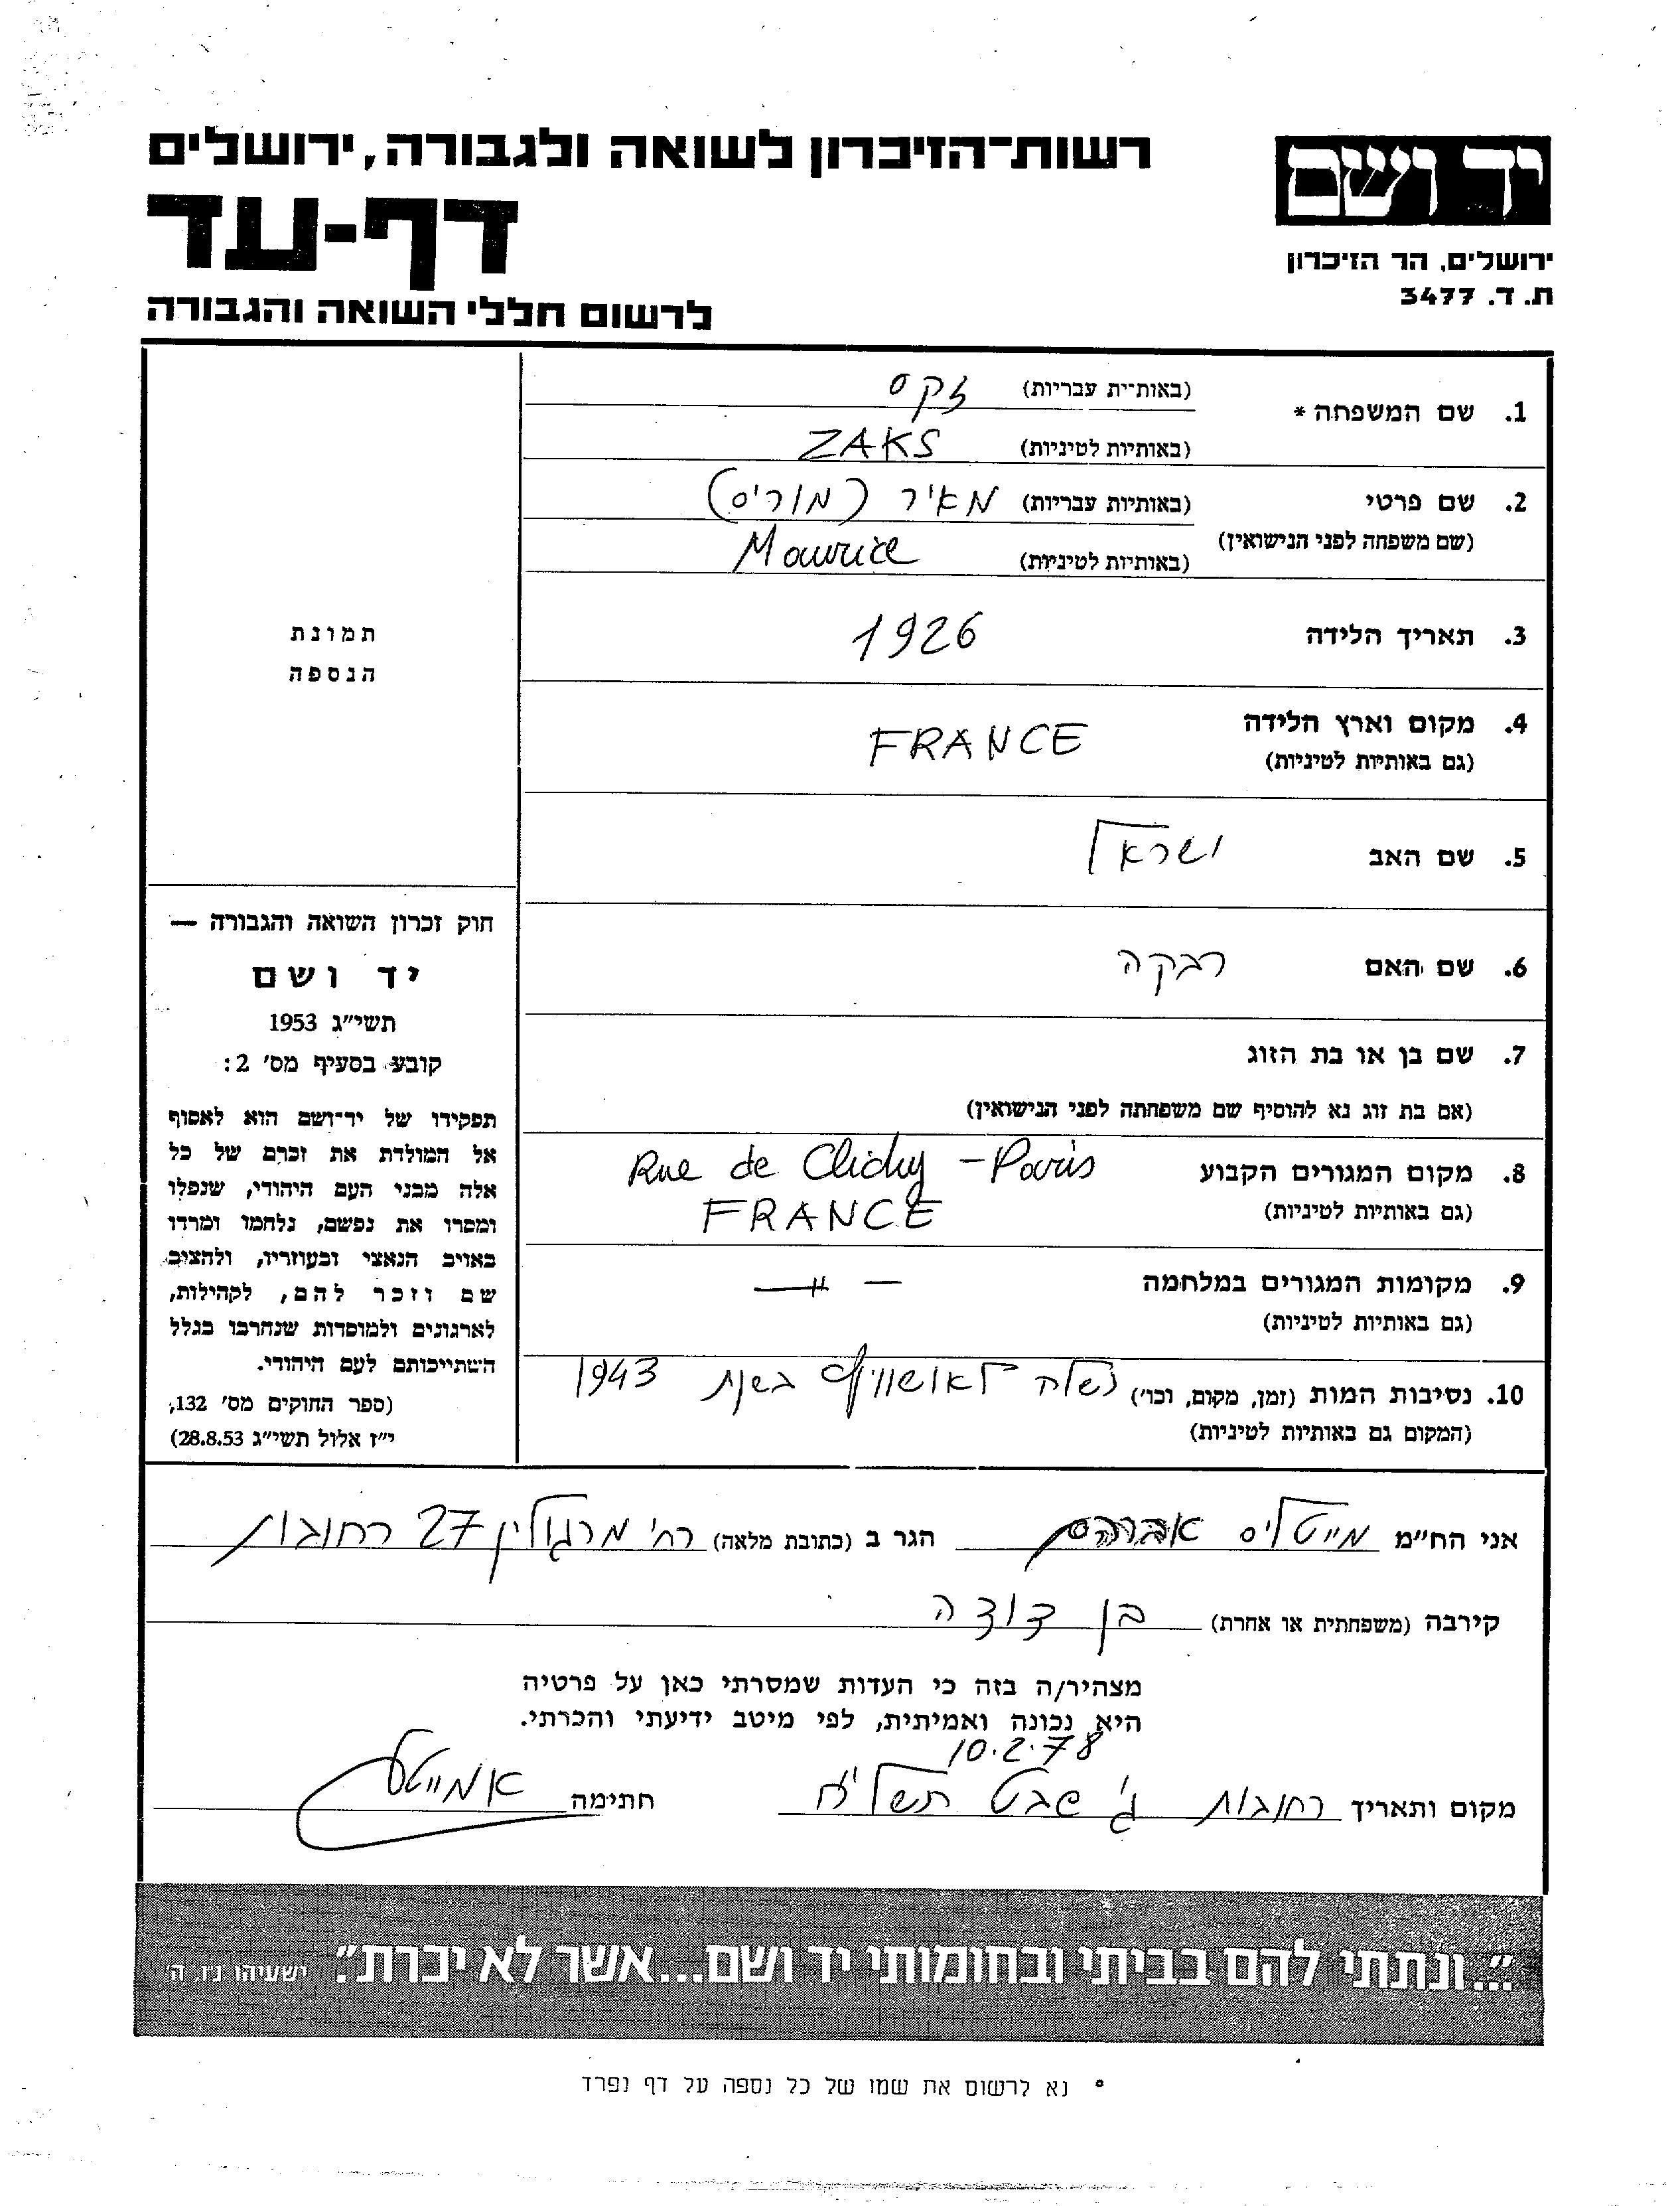 יד ושם
ירושלים, הר הזיכרון
ת. ד. 3477
רשות-הזיכרון לשואה ולגבורה, ירושלים
דף-עד
לרשום חללי השואה והגבורה
1. שם המשפחה * (באותיות עבריות) זקס
(באותיות לטיניות) ZAKS
2. שם פרטי (באותיות עבריות) מאיר (מוריס)
(שם משפחה לפני הנישואין) (באותיות לטיניות) Maurice
3. תאריך הלידה 1926
4. מקום וארץ הלידה FRANCE
(גם באותיות לטיניות)
5. שם האב ישראל
6. שם האם רבקה
7. שם בן או בת הזוג
(אם בת זוג נא להוסיף שם משפחתה לפני הנישואין)
8. מקום המגורים הקבוע Rue de Clichy – Paris
(גם באותיות לטיניות) FRANCE
9. מקומות המגורים במלחמה — " —
(גם באותיות לטיניות)
10. נסיבות המות (זמן, מקום, וכו') נשלח לאושוויץ בשנת 1943
(המקום גם באותיות לטיניות)
תמונת
הנספה
חוק זכרון השואה והגבורה —
יד ושם
תשי"ג 1953
קובע בסעיף מס' 2:
תפקידו של יד-ושם הוא לאסוף
אל המולדת את זכרם של כל
אלה מבני העם היהודי, שנפלו
ומסרו את נפשם, נלחמו ומרדו
באויב הנאצי ובעוזריו, ולהציב
שם וזכר להם, לקהילות,
לארגונים ולמוסדות שנחרבו בגלל
השתייכותם לעם היהודי.
(ספר החוקים מס' 132,
י"ז אלול תשי"ג 28.8.53)
אני הח"מ מייטליס אברהם הגר ב (כתובת מלאה) רח' מרגולין 27 רחובות
קירבה (משפחתית או אחרת) בן דודה
מצהיר/ה בזה כי העדות שמסרתי כאן על פרטיה
היא נכונה ואמיתית, לפי מיטב ידיעתי והכרתי.
10.2.78
מקום ותאריך רחובות ג' שבט תשל"ח חתימה
"...ונתתי להם בביתי ובחומותי יד ושם...אשר לא יכרת". ישעיהו נ"ו, ה'
* נא לרשום את שמו של כל נספה על דף נפרד